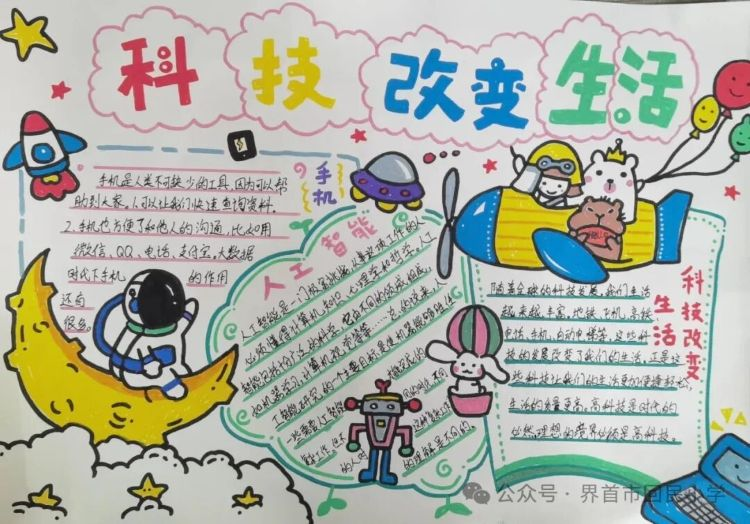 科技改变生活
手机
1.手机是人类不可缺少的工具,因为可以帮
助到大家,人可以让我们快速查询资料。
2.手机也方便了和他人的沟通,比如用
微信、QQ、电话、支付宝,大数据
时代下手机的作用
还有
很多。
人工智能
人工智能是一门极富挑战
从事这项工作的人
必须懂得计算机知识、心理学和哲学。人工
智能包括
十分广泛的科学,它由不同的领域组成,
如机器学习,计算机视觉等等
工智能研究的一个主要目标是使机器能够胜任
一些需要人工智能
工作,但不
的人对
的理解是不同的。
科技改变
生活
随着全球的科技发展,我们生活
越来越丰富,地铁、手机、高铁
电话、手机、自动电梯等,这些科
技的发展改变了我们的生活,正是这
些科技让我们的生活更加便捷
生活的质量更高,高科技是时代的
必然,理想的世界必须是高科技。
公众号·界首市回民小学